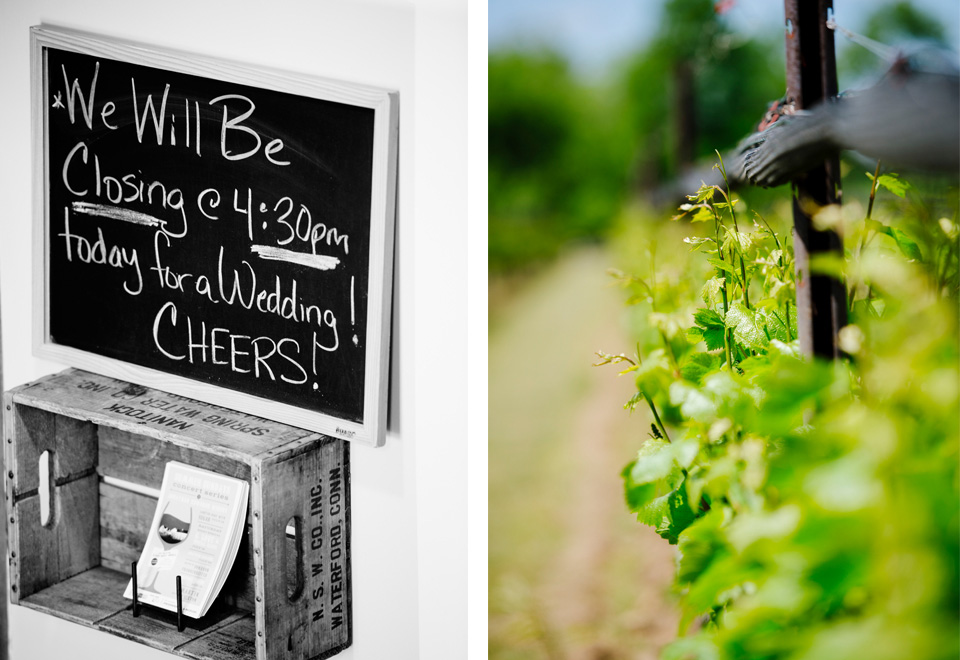 *We Will Be
Closing @ 4:30pm
today for a Wedding!
CHEERS!
NANTUCK
SPRING WATER CO
INC.
concert series
N. S. W. CO., INC.
WATERFORD, CONN.